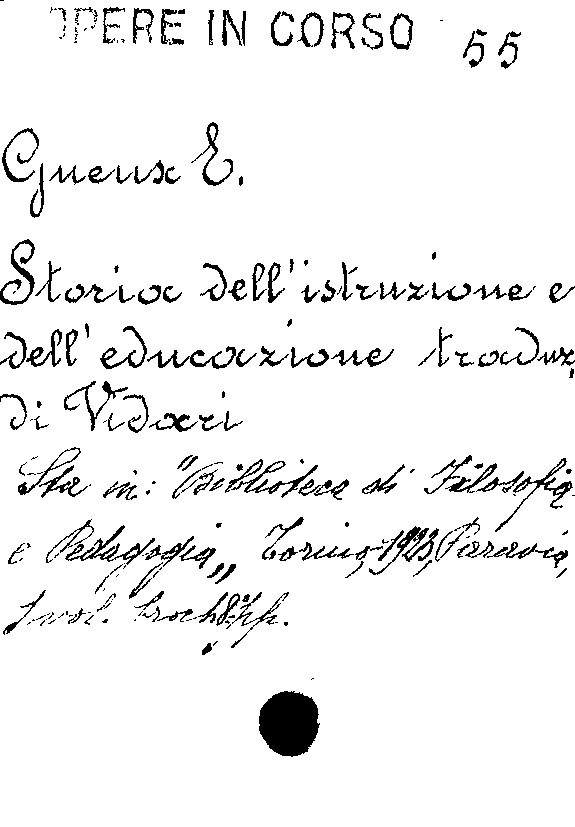 OPERE IN CORSO 55
Gueux E.
Storia dell'istruzione e
dell'educazione traduz.
di Vidari
Sta in: "Biblioteca di Filosofia
e Pedagogia„ Torino, 1923, Paravia,
1 vol. broch.